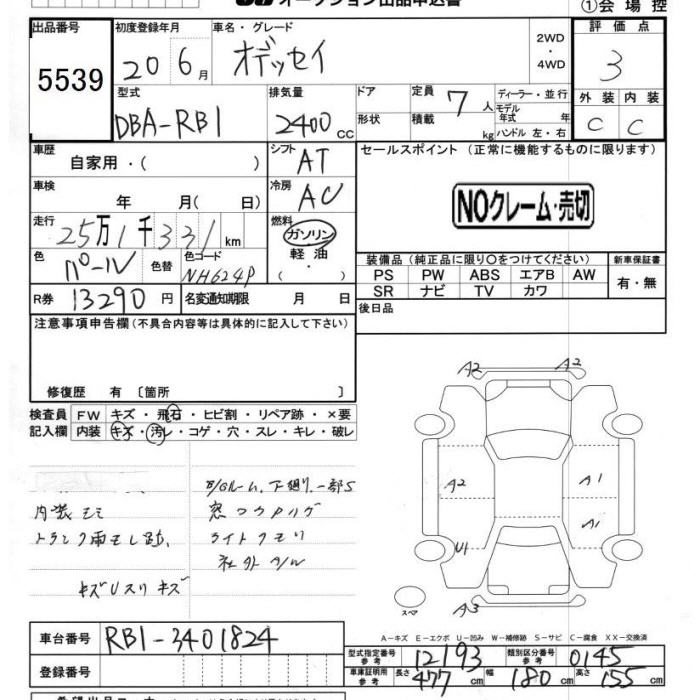 オークション出品申込書
①会場控
出品番号 初度登録年月 車名・グレード 2WD・4WD 評価点
5539 20 6月 オデッセイ 3
型式 排気量 ドア 定員 7人 ディーラー・並行 外装 内装
DBA-RB1 2400cc 形状 積載 kg モデル年式 年 ハンドル 左・右 C C
車歴 自家用・( ) シフト AT セールスポイント(正常に機能するものに限ります)
車検 年 月( 日) 冷房 AC
NOクレーム・売切
走行 25万1千331km 燃料 ガソリン 軽油・
色 パール 色替 色コード NH624P
装備品(純正品に限り○をつけてください) 新車保証書
PS PW ABS エアB AW 有・無
SR ナビ TV カワ
R券 13290円 名変通知期限 月 日
後日品
注意事項申告欄(不具合内容等は具体的に記入して下さい)
修復歴 有 〔箇所 〕
検査員 FW キズ・飛石・ヒビ割・リペア跡・×要
記入欄 内装 キズ・汚レ・コゲ・穴・スレ・キレ・破レ
A2 A2
A2 A1
A1
U1
A3
スペア
下廻り、一部S
内装モミ
トランク雨モレ跡、
ライトクモリ
社外A/W
キズUスリキズ
A-キズ E-エクボ U-凹み W-補修跡 S-サビ C-腐食 XX-交換済
車台番号 RB1-3401824
型式指定番号 参考 12193 類別区分番号 参考 0145
登録番号
車庫証明用 参考 長さ 477cm 幅 180cm 高さ 155cm